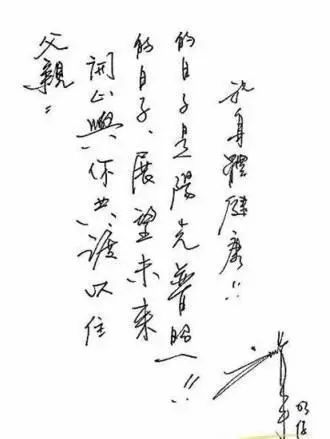 父親：
開心與你共渡以往
的日子、展望未來
的日子是陽光普照！！
祝身體健康！！